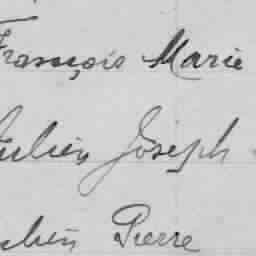 François Marie
Julien Joseph
Pierre